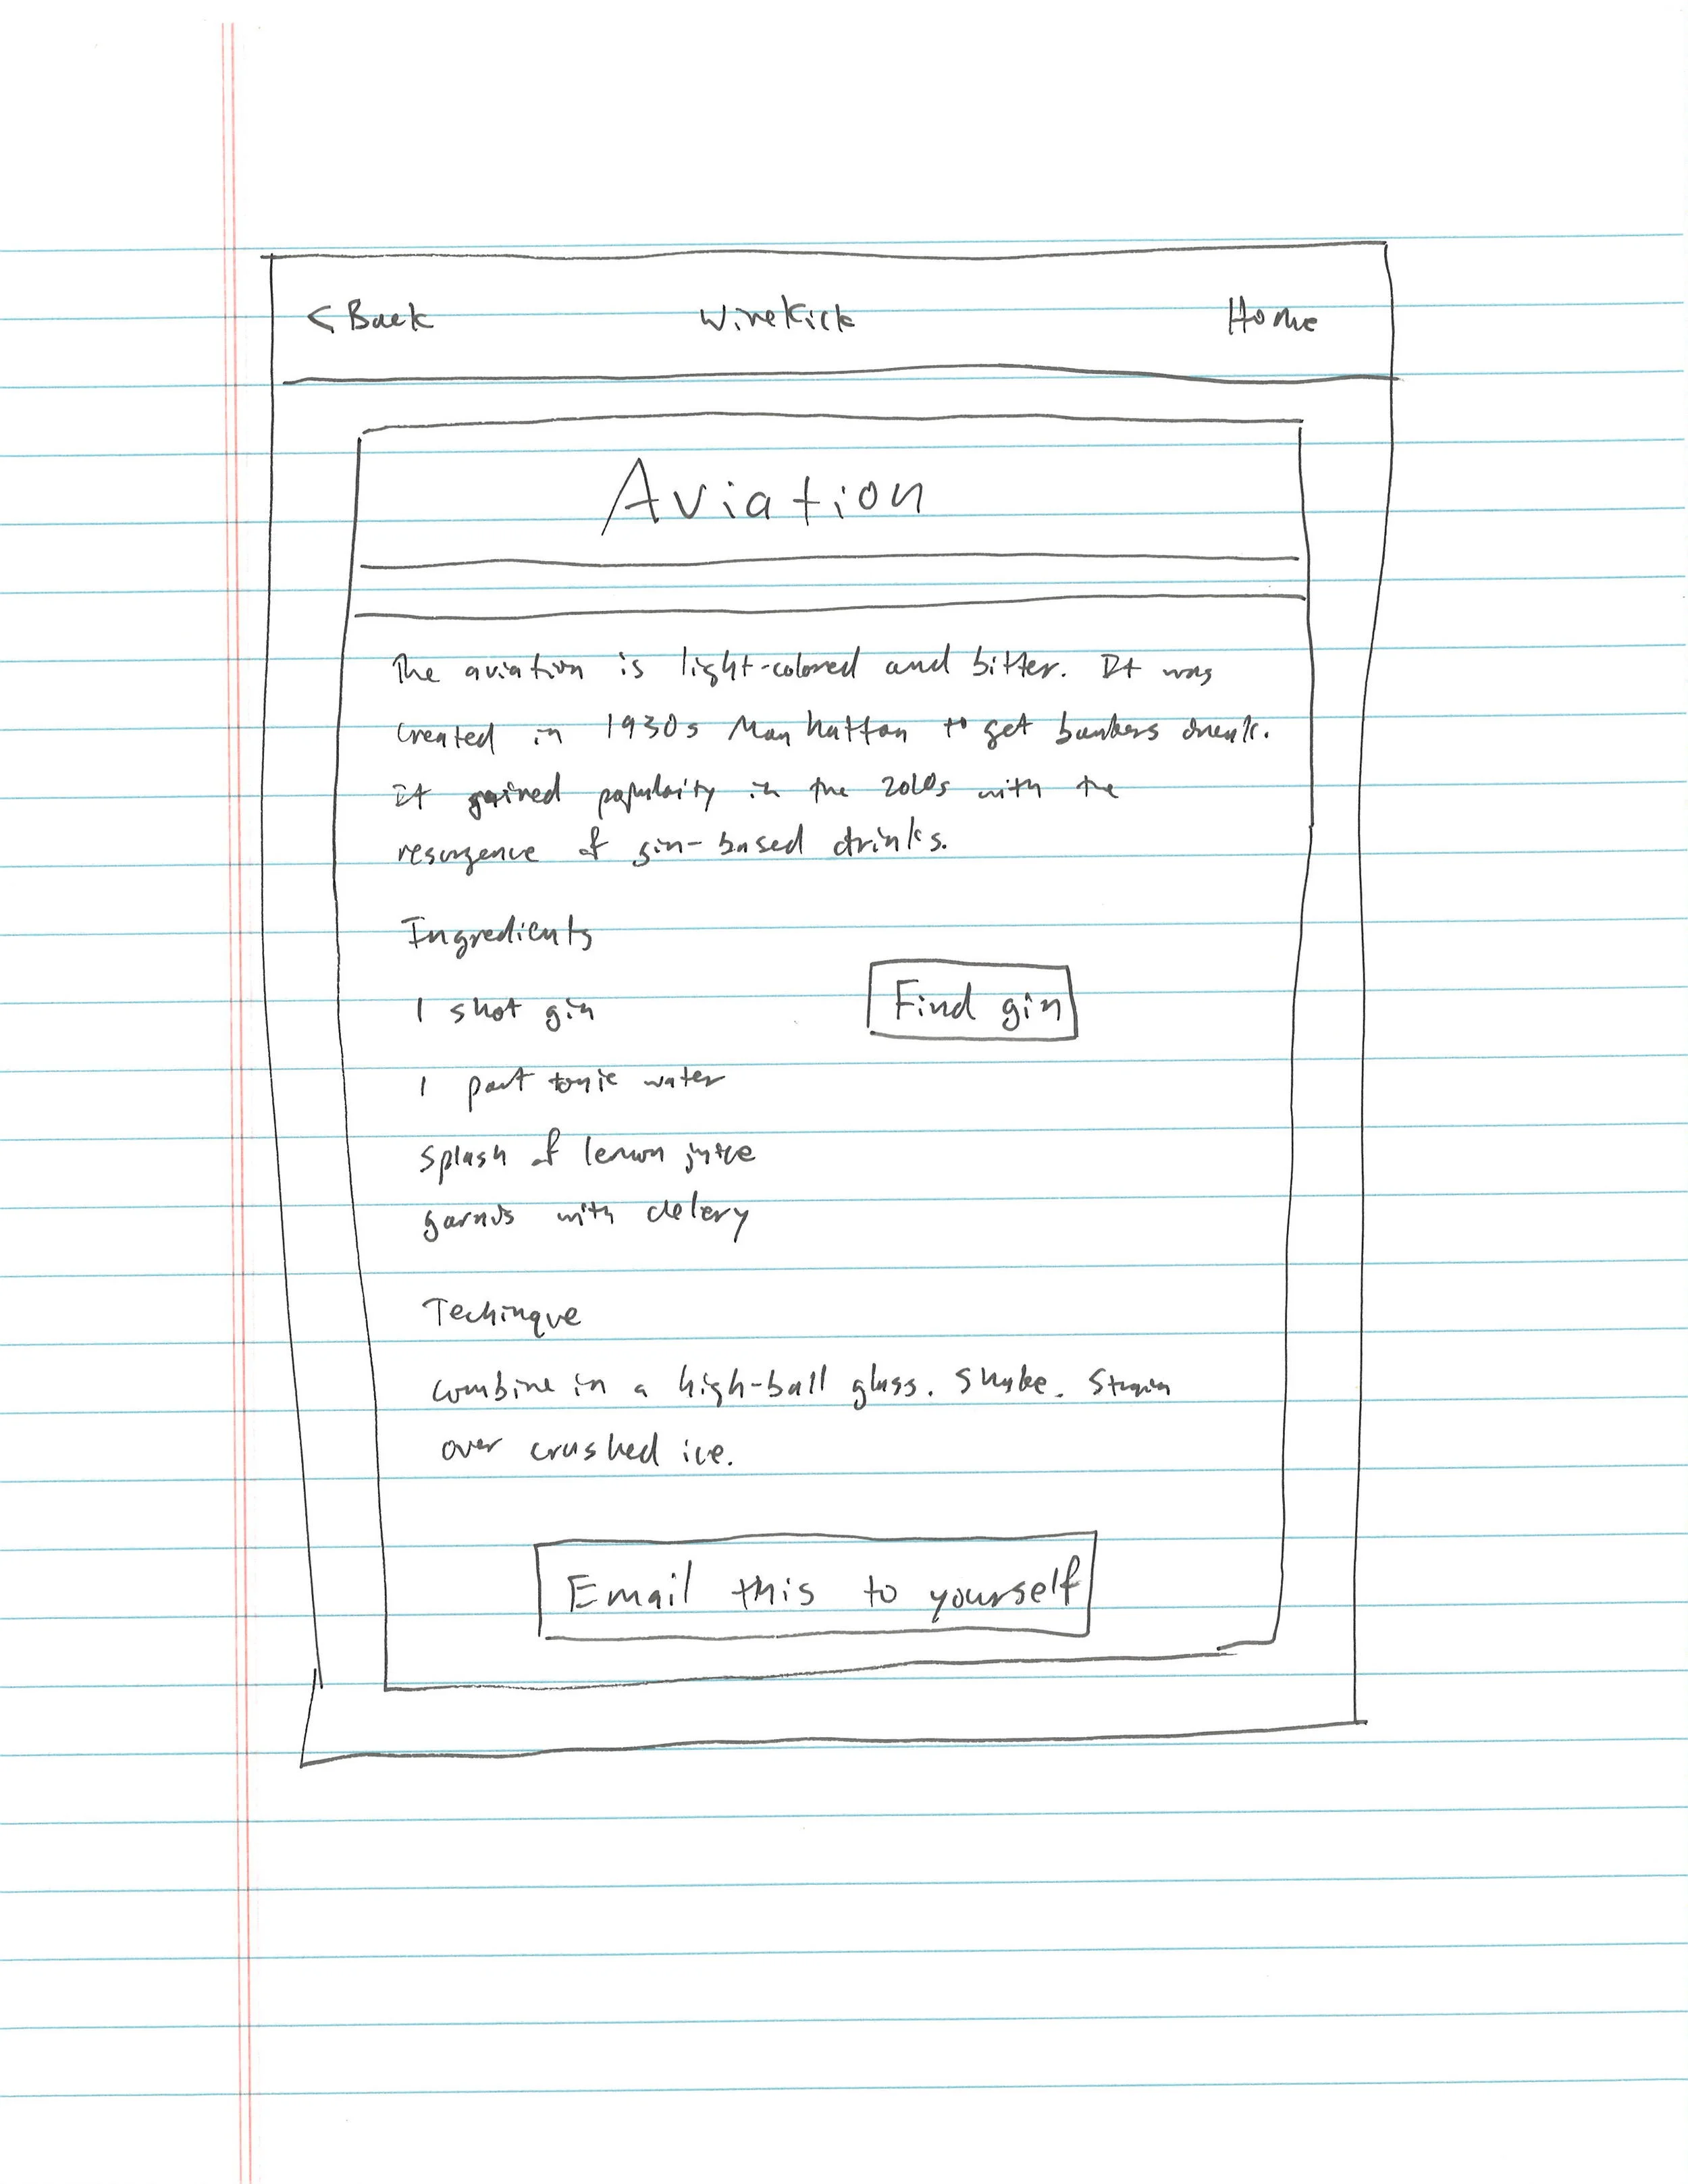 < Back WineKick Home
Aviation
The aviation is light-colored and bitter. It was
created in 1930s Manhattan to get bankers drunk.
It gained popularity in the 2010s with the
resurgence of gin-based drinks.
Ingredients
1 shot gin Find gin
1 part tonic water
splash of lemon juice
garnis with celery
Techinque
combine in a high-ball glass. Shake. Strain
over crushed ice.
Email this to yourself